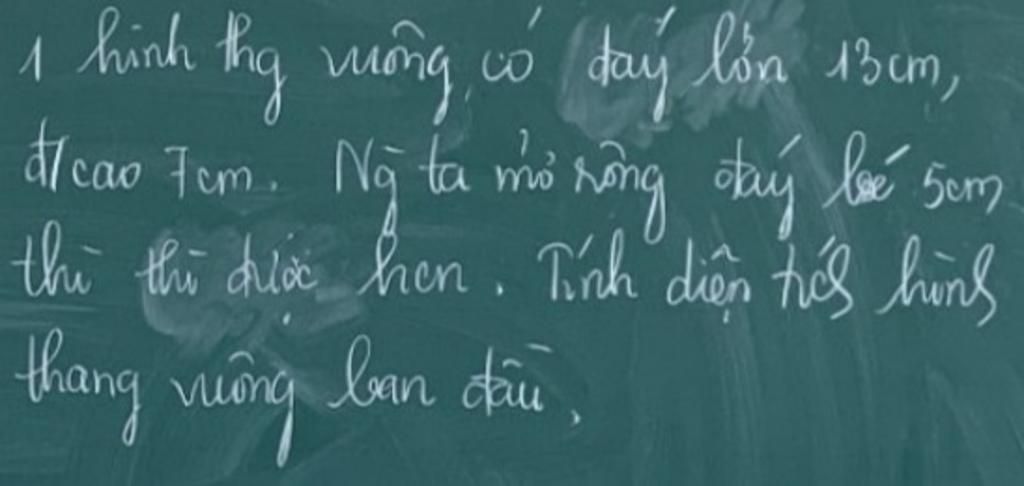 1 hình thg vuông có đáy lớn 13cm,
đ/cao 7cm. Ng ta mở rộng đáy bé 5cm
thì thì được hcn. Tính diện tích hình
thang vuông ban đầu.